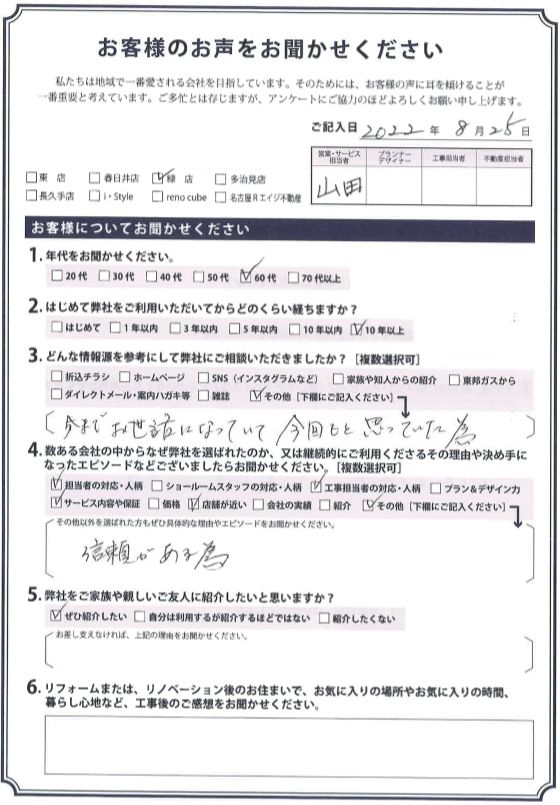 お客様のお声をお聞かせください
私たちは地域で一番愛される会社を目指しています。そのためには、お客様の声に耳を傾けることが
一番重要と考えています。ご多忙とは存じますが、アンケートにご協力のほどよろしくお願い申し上げます。
ご記入日 2022 年 8 月 25 日
営業・サービス担当者 プランナーデザイナー 工事担当者 不動産担当者
山田
□東 店 □春日井店 ☑緑 店 □多治見店
□長久手店 □i・Style □reno cube □名古屋Rエイジ不動産
お客様についてお聞かせください
1. 年代をお聞かせください。
□20代 □30代 □40代 □50代 ☑60代 □70代以上
2. はじめて弊社をご利用いただいてからどのくらい経ちますか？
□はじめて □1年以内 □3年以内 □5年以内 □10年以内 ☑10年以上
3. どんな情報源を参考にして弊社にご相談いただきましたか？［複数選択可］
□折込チラシ □ホームページ □SNS（インスタグラムなど） □家族や知人からの紹介 □東邦ガスから
□ダイレクトメール・案内ハガキ等 □雑誌 ☑その他［下欄にご記入ください］
今までお世話になっていて今回もと思っていた為
4. 数ある会社の中からなぜ弊社を選ばれたのか、又は継続的にご利用くださるその理由や決め手に
なったエピソードなどございましたらお聞かせください。［複数選択可］
☑担当者の対応・人柄 □ショールームスタッフの対応・人柄 ☑工事担当者の対応・人柄 □プラン&デザイン力
☑サービス内容や保証 □価格 ☑店舗が近い □会社の実績 □紹介 ☑その他［下欄にご記入ください］
その他以外を選ばれた方もぜひ具体的な理由やエピソードをお聞かせください。
信頼がある為
5. 弊社をご家族や親しいご友人に紹介したいと思いますか？
☑ぜひ紹介したい □自分は利用するが紹介するほどではない □紹介したくない
お差し支えなければ、上記の理由をお聞かせください。
6. リフォームまたは、リノベーション後のお住まいで、お気に入りの場所やお気に入りの時間、
暮らし心地など、工事後のご感想をお聞かせください。